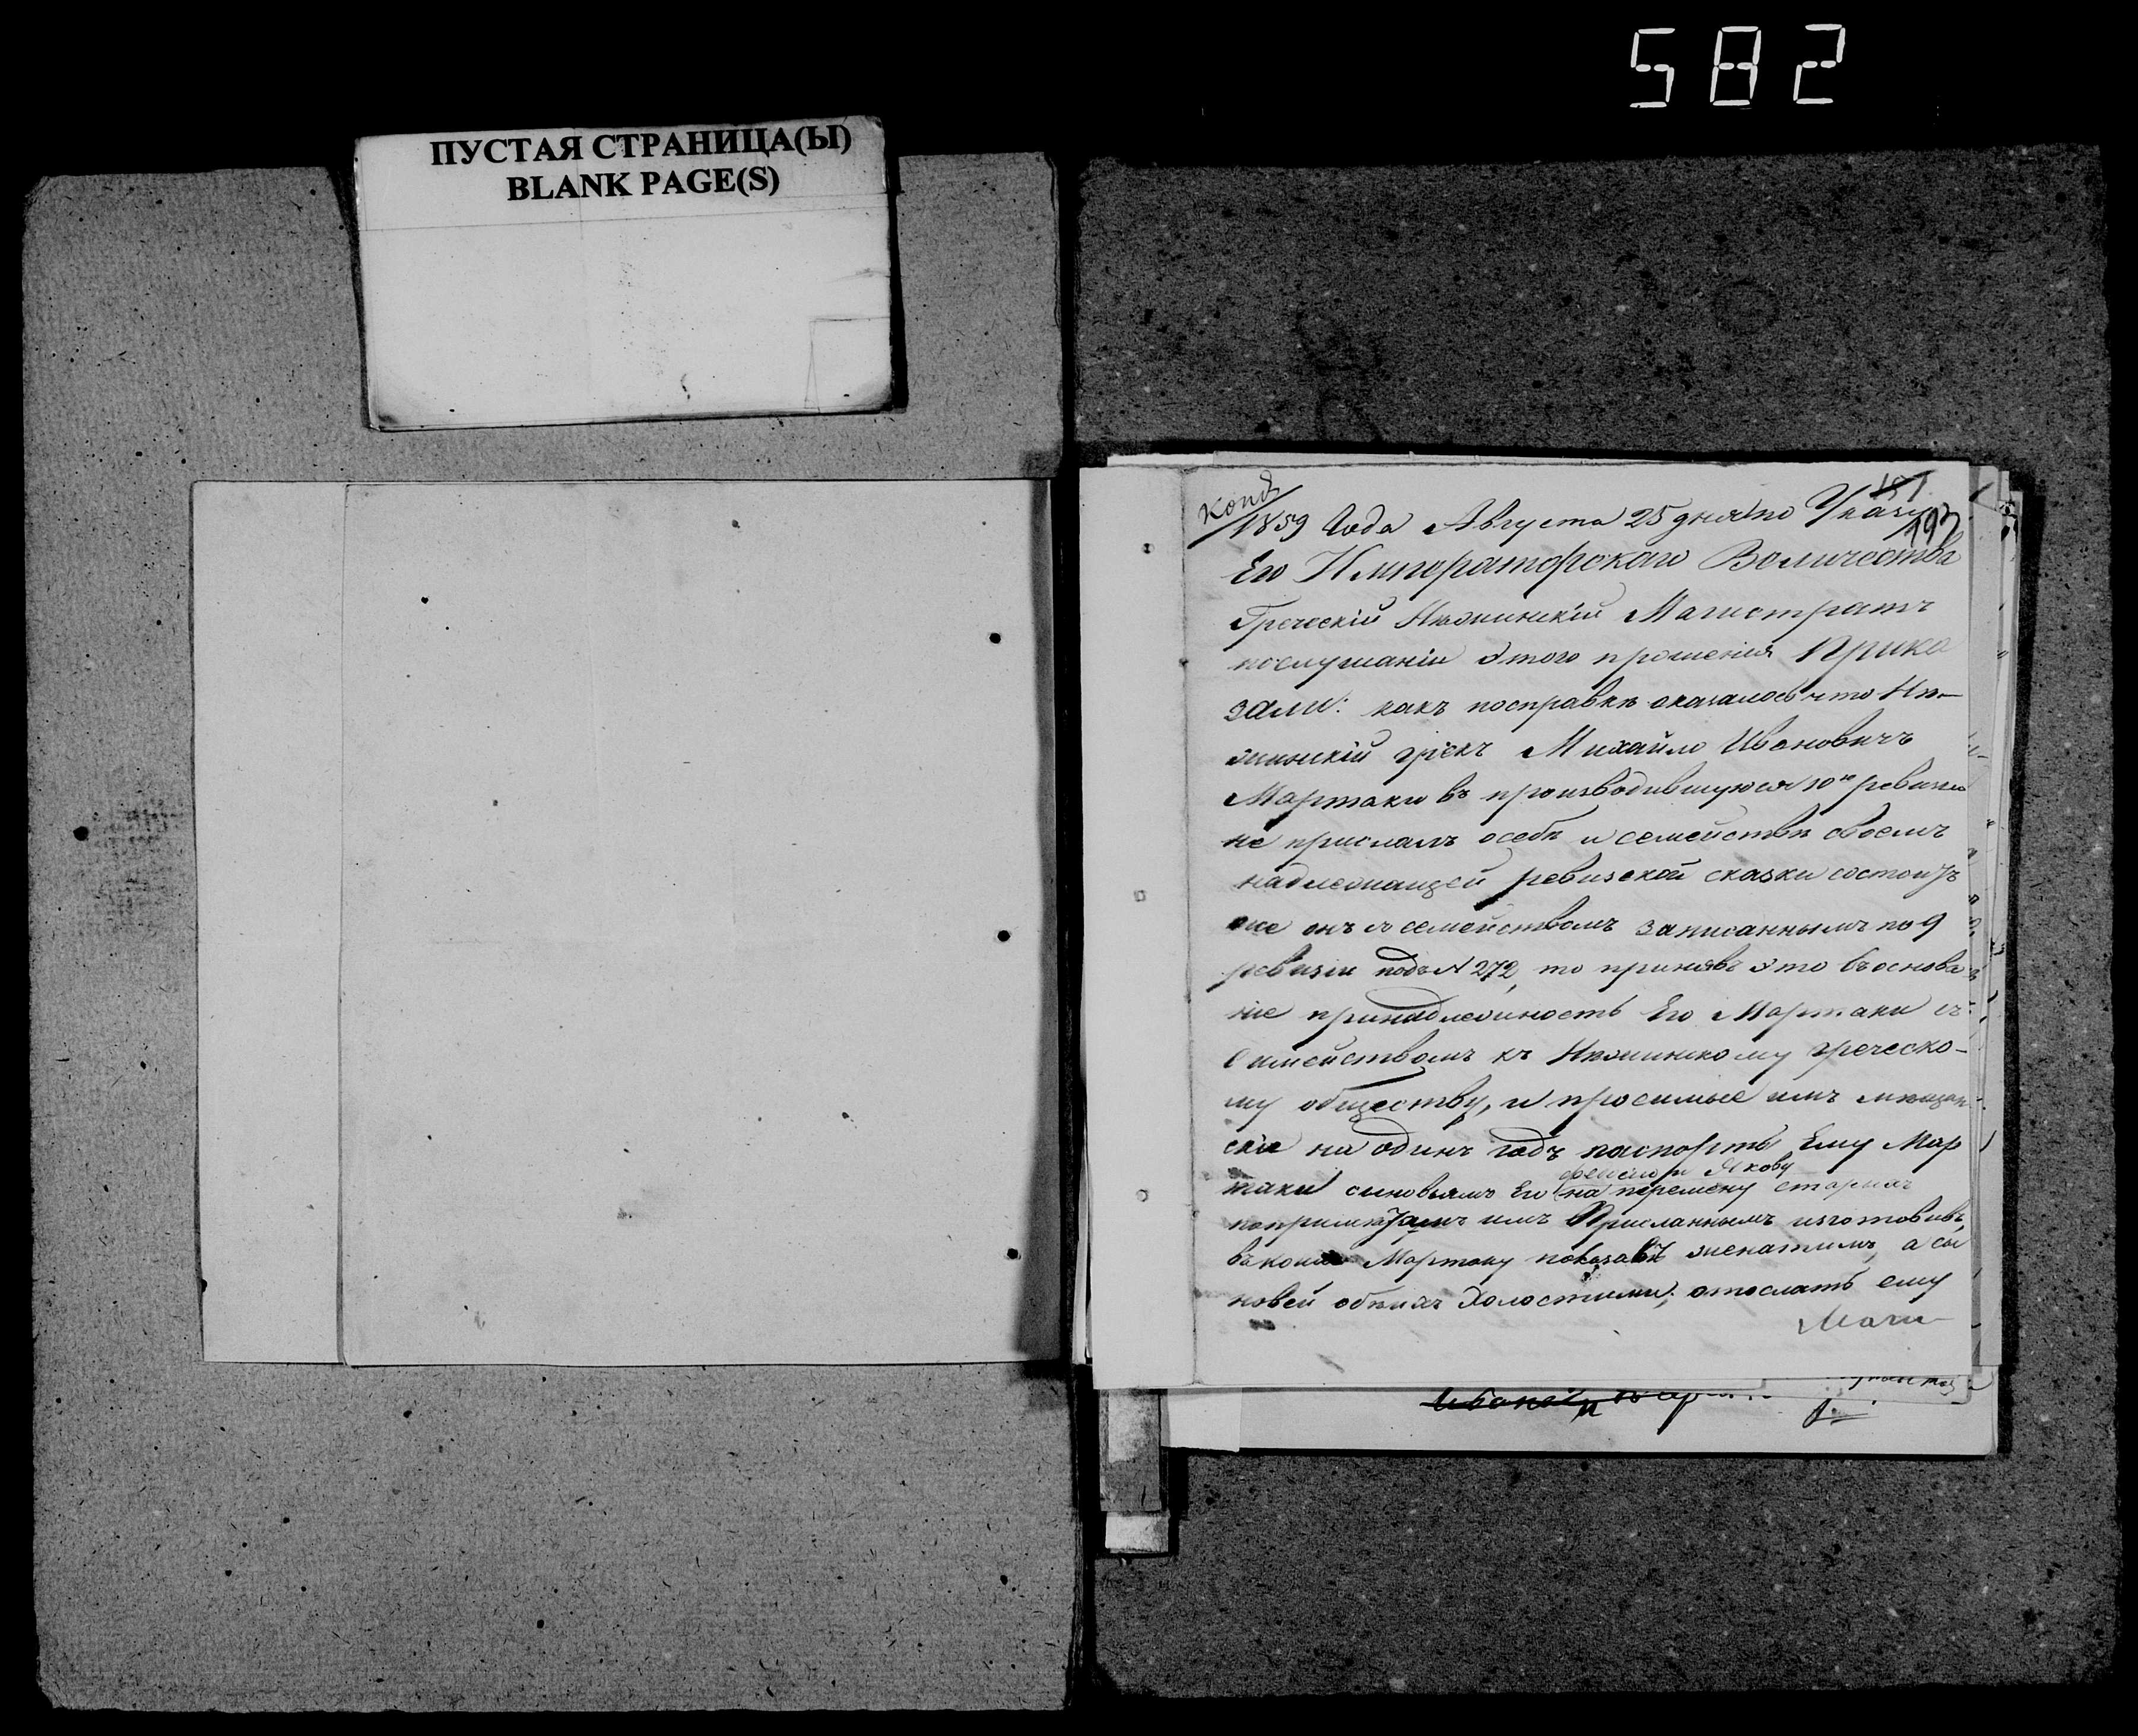 582
ПУСТАЯ СТРАНИЦА(Ы)
BLANK PAGE(S)
копія
191
193
1859 Года Августа 25 дня по Указу
Его Императорскаго Величества
Греческій Нѣжинскій Магистратъ
послушаніи этого прошенія Прика
зали: какъ посправкѣ оказалось что Нѣ-
жинскій грекъ Михайло Ивановичъ
Мартаки въ производившуюся 10ю ревизію
не прислалъ осебѣ и семействѣ своемъ
надлежащей ревизской сказки состоитъ
же онъ съ семействомъ записаннымъ по 9
ревизіи подъ N 272, то принявъ это въоснова
ніе принадлежность Его Мартаки съ
Семействомъ къ Нѣжинскому греческо-
му обществу, и просимые имъ мѣщан
скіе на одинъ годъ паспорты Ему Мар
Якову
таки сыновьямъ Его на перемену старыхъ
попримѣтамъ имъ Присланнымъ изготовивъ,
Мартаку показавъ женатымъ, а сы
новей обѣихъ Холостыми; отослать ему